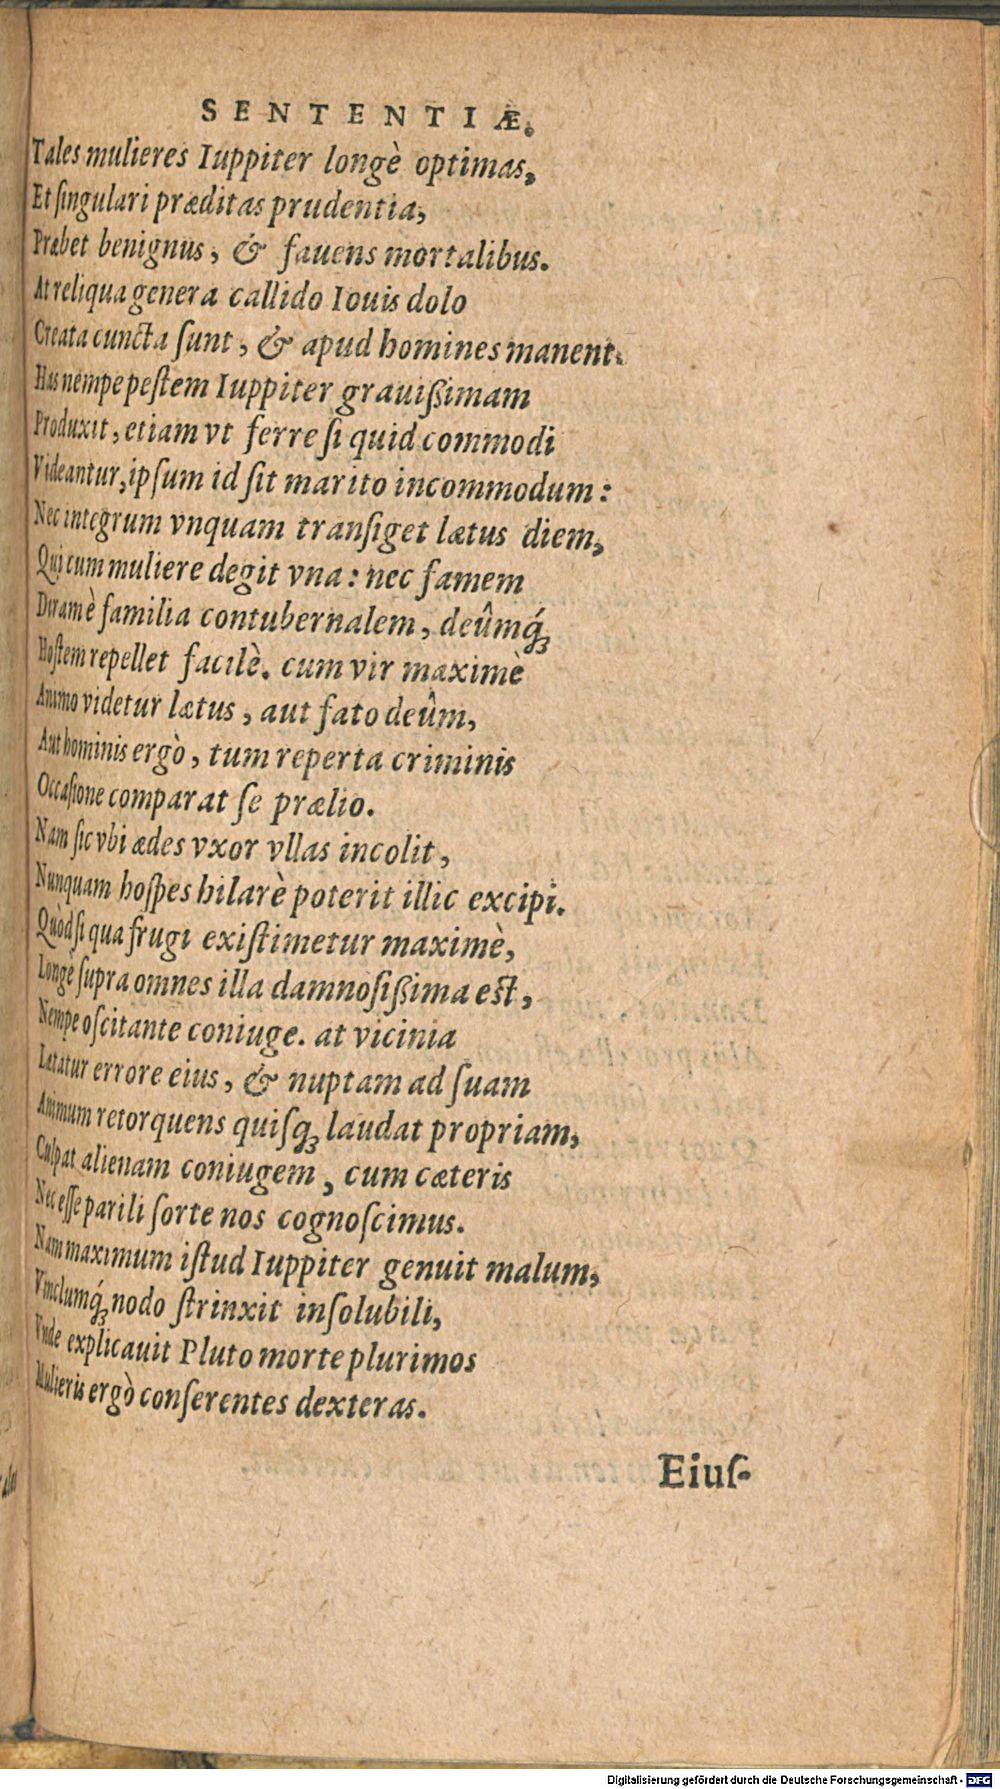 SENTENTIÆ.
Tales mulieres Iuppiter longè optimas,
Et ſingulari præditas prudentia,
Præbet benignus, & fauens mortalibus.
At reliqua genera callido Iouis dolo
Creata cuncta ſunt, & apud homines manent.
Has nempe peſtem Iuppiter grauißimam
Produxit, etiam vt ferre ſi quid commodi
Videantur, ipſum id ſit marito incommodum:
Nec integrum vnquam tranſiget lætus diem,
Qui cum muliere degit vna: nec famem
Diram è familia contubernalem, deûmq́ꝫ
Hoſtem repellet facilè. cum vir maximè
Animo videtur lætus, aut fato deûm,
Aut hominis ergò, tum reperta criminis
Occaſione comparat ſe prælio.
Nam ſic vbi ædes vxor vllas incolit,
Nunquam hoſpes hilarè poterit illic excipi.
Quòd ſi qua frugi exiſtimetur maximè,
Longè ſupra omnes illa damnoſißima eſt,
Nempe oſcitante coniuge. at vicinia
Lætatur errore eius, & nuptam ad ſuam
Animum retorquens quiſqꝫ laudat propriam,
Culpat alienam coniugem, cum cæteris
Nec eſſe parili ſorte nos cognoſcimus.
Nam maximum iſtud Iuppiter genuit malum,
Vinclumq́ꝫ nodo ſtrinxit inſolubili,
Vnde explicauit Pluto morte plurimos
Mulieris ergò conſerentes dexteras.
Eiuſ-
Digitalisierung gefördert durch die Deutsche Forschungsgemeinschaft - DFG